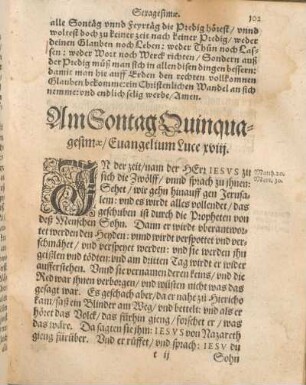 Sexagesimæ.
102
alle Sontäg vnnd Feyrtäg die Predig hörest/ vnnd
woltest doch zu keiner zeit nach keiner Predig/ weder
deinen Glauben noch Leben: weder Thün noch Las-
sen: weder Wort noch Werck richten/ Sondern auß
der Predig müß man sich in allen disen dingen bessern:
damit man hie auff Erden den rechten vollkommen
Glauben bekomme: ein Christenlichen Wandel an sich
nemme: vnd endlich selig werde/ Amen.
Am Sontag Quinqua-
gesimæ/ Euangelium Luce xviij.
IN der zeit/ nam der HErr IESVS zu
sich die Zwölff/ vnnd sprach zu jhnen:
Sehet/ wir gehn hinauff gen Jerusa-
lem: vnd es wirdt alles vollendet/ das
geschriben ist durch die Propheten von
deß Menschen Sohn. Dann er wirdt vberantwor-
tet werden den Heyden: vnnd wirdt verspottet vnd ver-
schmähet/ vnd verspeyet werden: vnd sie werden jhn
geißlen vnd tödten: vnd am dritten Tag wirdt er wider
aufferstehen. Vnnd sie vernamen deren keins/ vnd die
Red war jhnen verborgen/ vnd wüsten nicht was das
gesagt war. Es geschach aber/ da er nahe zu Hiericho
kam/ saß ein Blinder am Weg/ vnd bettelt: vnd als er
höret das Volck/ das fürhin gieng/ forschet er/ was
das wäre. Da sagten sie jhm: IESVS von Nazareth
gieng fürüber. Vnd er rüffet/ vnd sprach: IESV du
t ij
Sohn
Matth. 20.
Marc. 10.